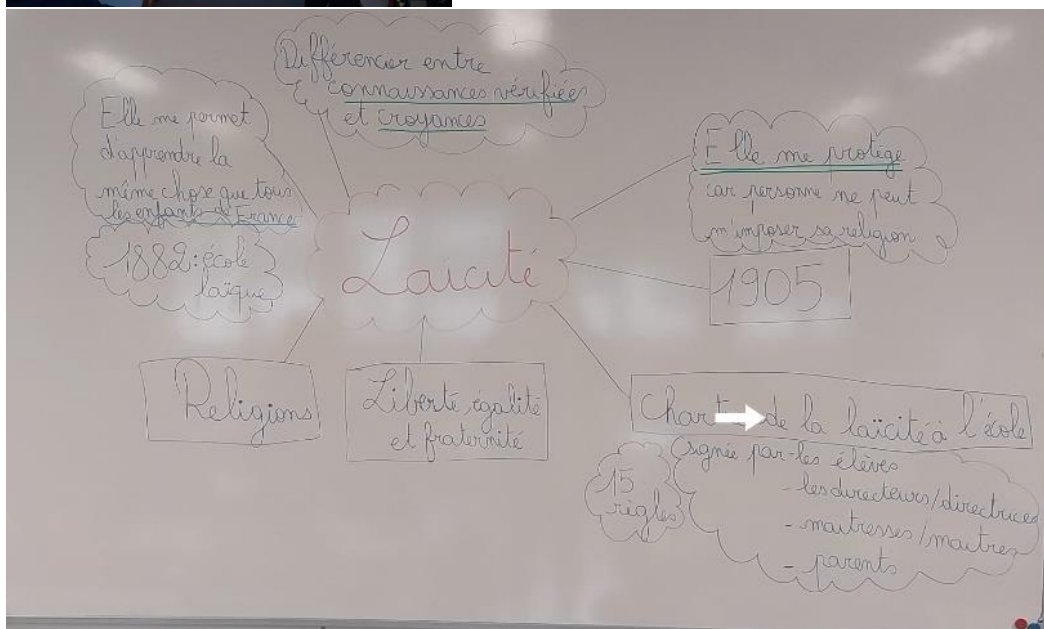 Différencier entre
connaissances vérifiées
et croyances
Elle me permet
d'apprendre la
même chose que tous
les enfants de France
1882 : école
laïque
Laïcité
Elle me protège
car personne ne peut
m'imposer sa religion
1905
Religions
Liberté, égalité
et fraternité
de la laïcité à l'école
15
règles
(signée par - les élèves
- les directeurs/directrices
- maitresses/maitres
- parents